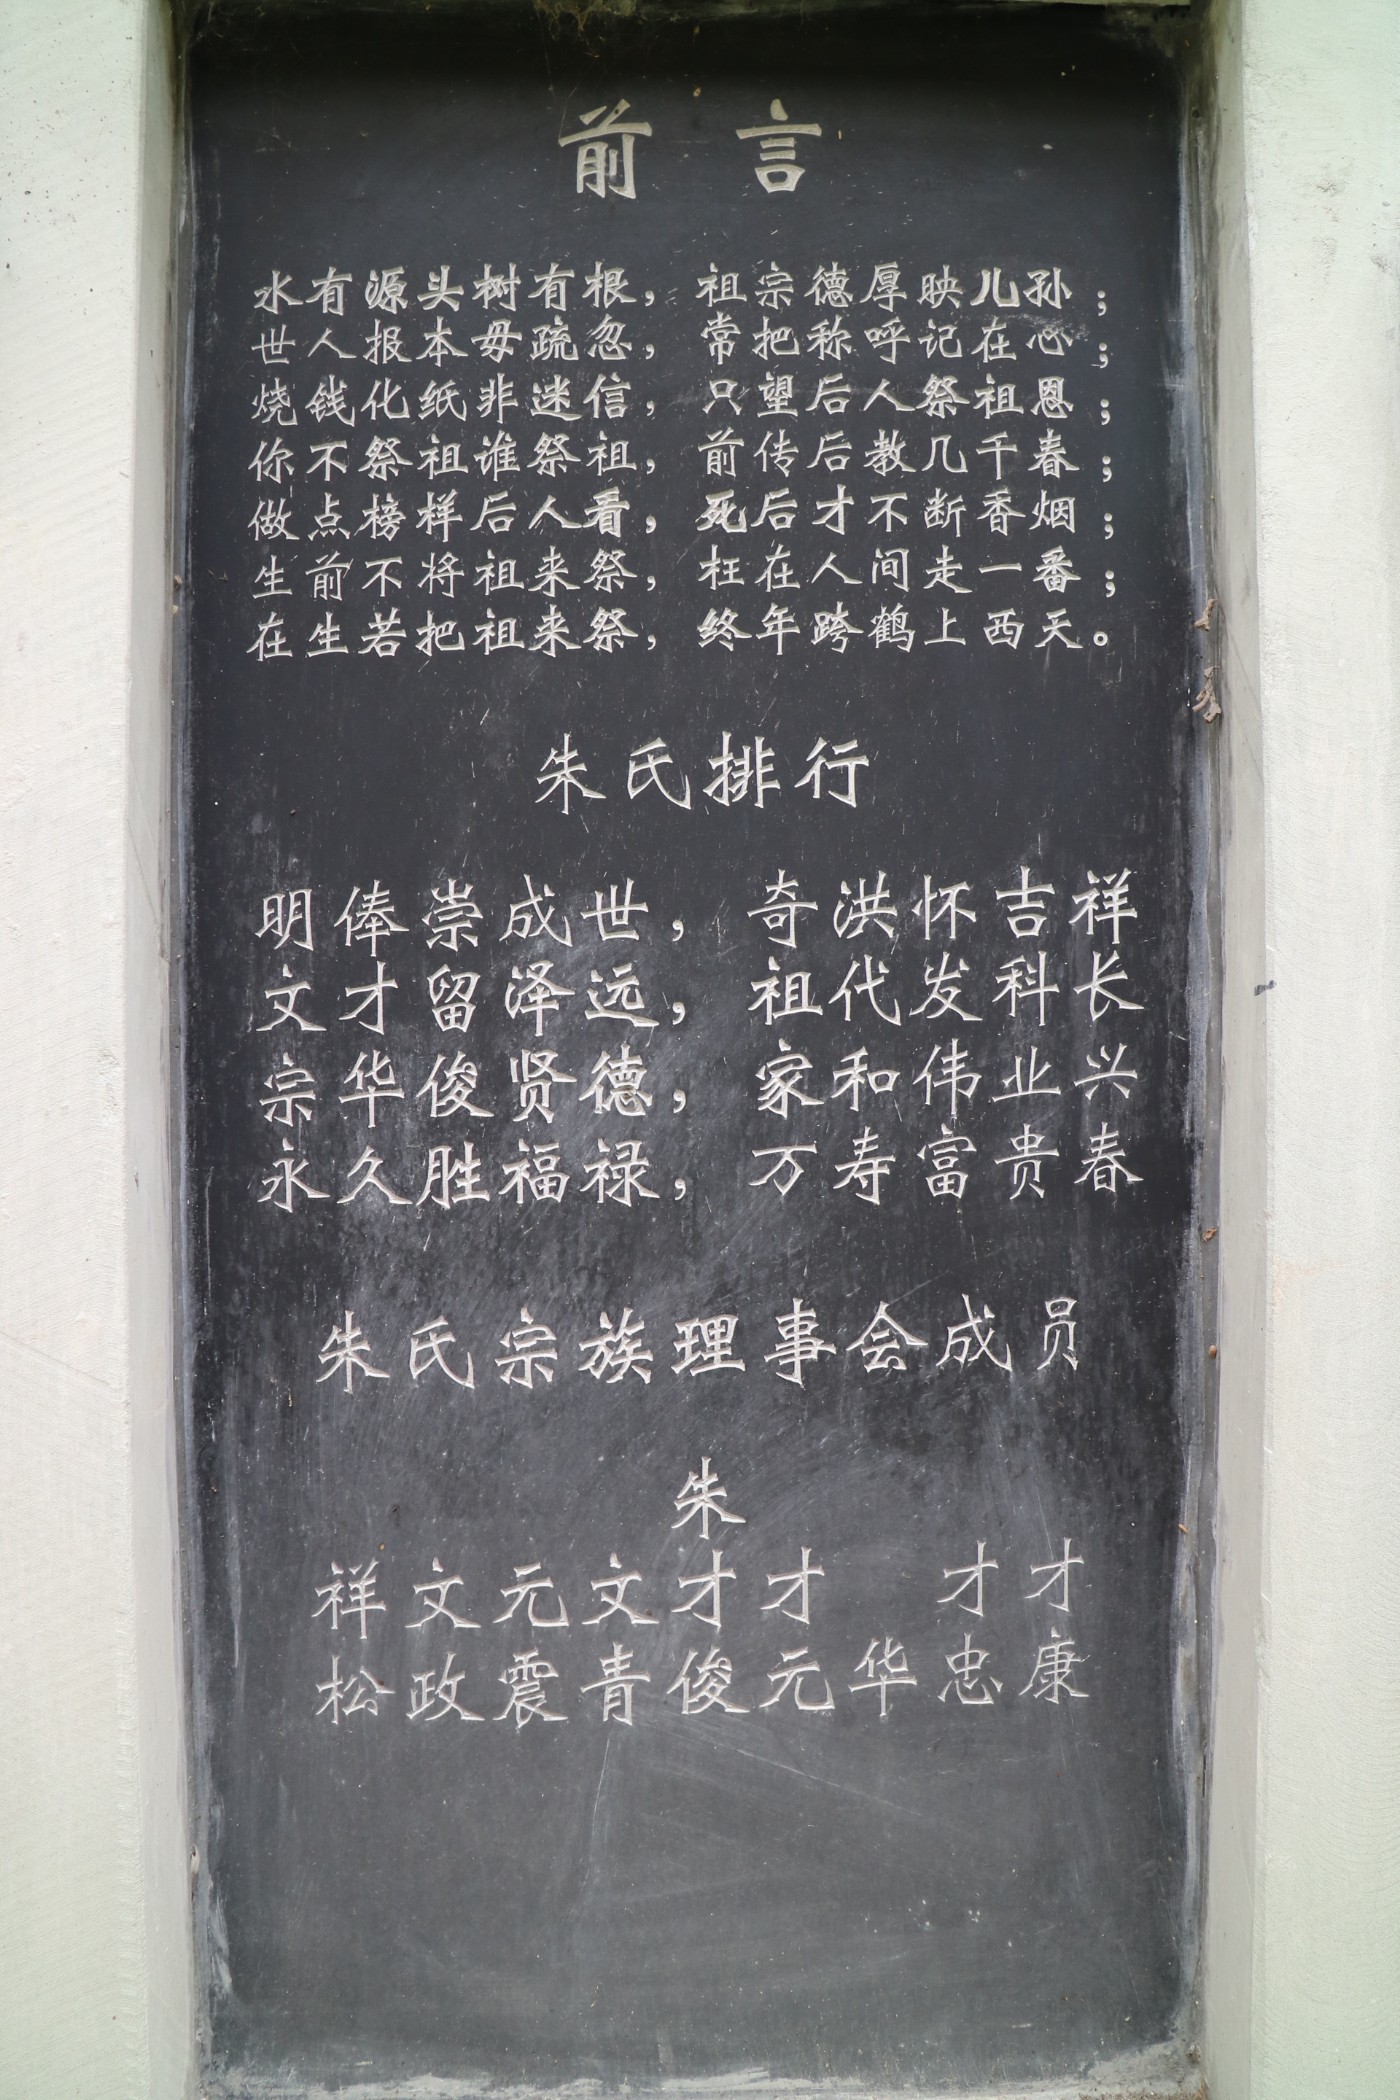 前言
水有源头树有根，祖宗德厚映儿孙；
世人报本毋疏忽，常把称呼记在心；
烧钱化纸非迷信，只望后人祭祖恩；
你不祭祖谁祭祖，前传后教几千春；
做点榜样后人看，死后才不断香烟；
生前不将祖来祭，枉在人间走一番；
在生若把祖来祭，终年跨鹤上西天。
朱氏排行
明俸崇成世，奇洪怀吉祥
文才留泽远，祖代发科长
宗华俊贤德，家和伟业兴
永久胜福禄，万寿富贵春
朱氏宗族理事会成员
朱
祥文元文才才 才才
松政震青俊元华忠康